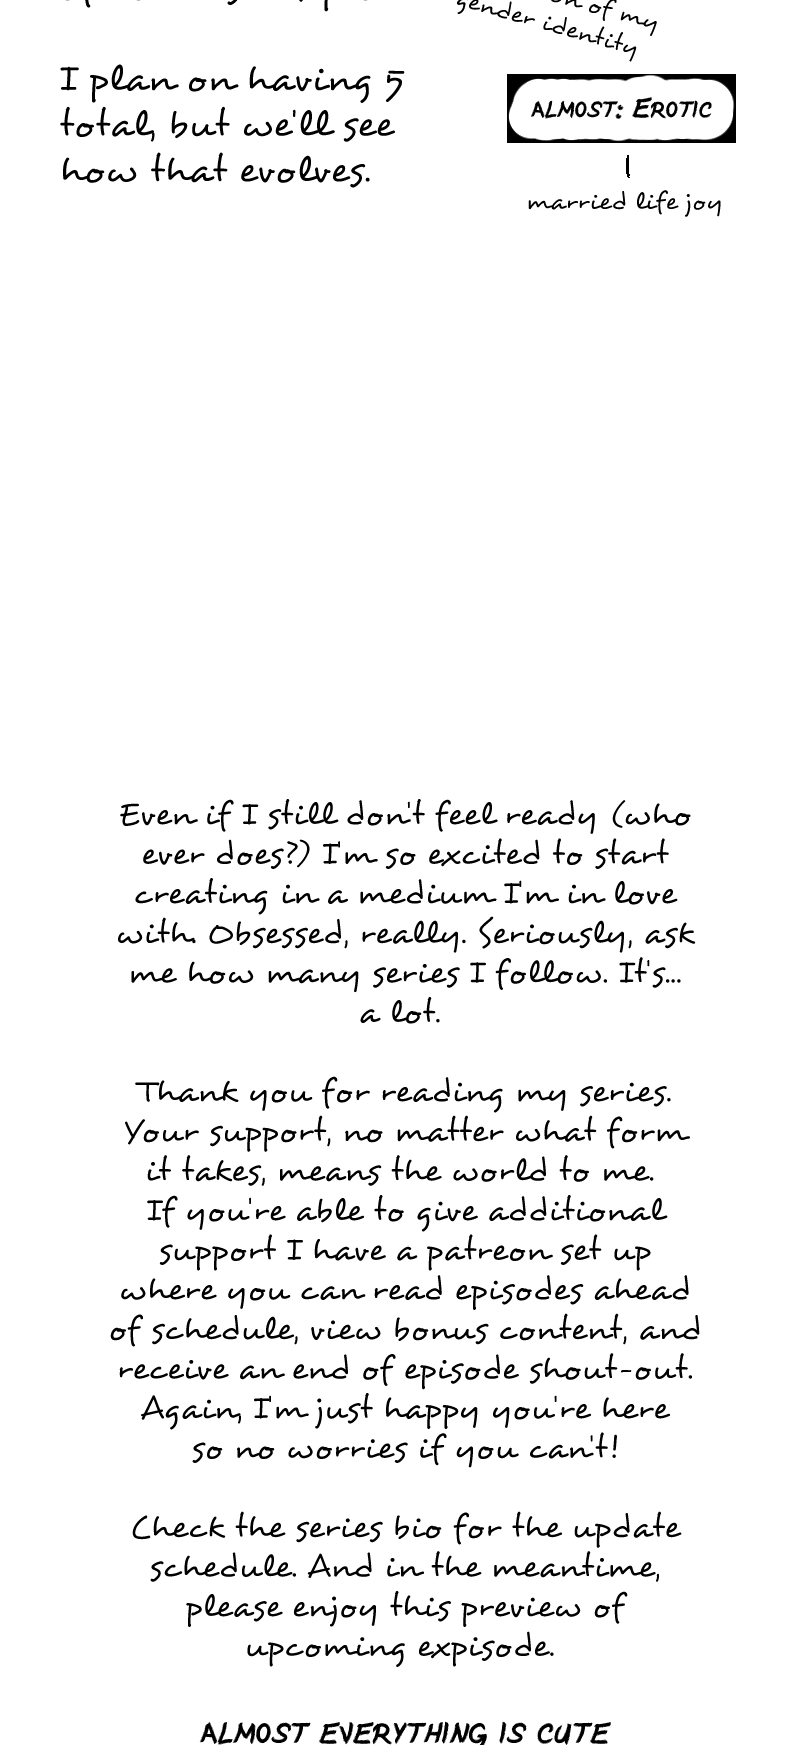 of my
gender identity
I plan on having 5
total, but we'll see
how that evolves.
ALMOST: EROTIC
married life joy
Even if I still don't feel ready (who
ever does?) I'm so excited to start
creating in a medium I'm in love
with. Obsessed, really. Seriously, ask
me how many series I follow. It's...
a lot.
Thank you for reading my series.
Your support, no matter what form
it takes, means the world to me.
If you're able to give additional
support I have a patreon set up
where you can read episodes ahead
of schedule, view bonus content, and
receive an end of episode shout-out.
Again, I'm just happy you're here
so no worries if you can't!
Check the series bio for the update
schedule. And in the meantime,
please enjoy this preview of
upcoming expisode.
ALMOST EVERYTHING IS CUTE